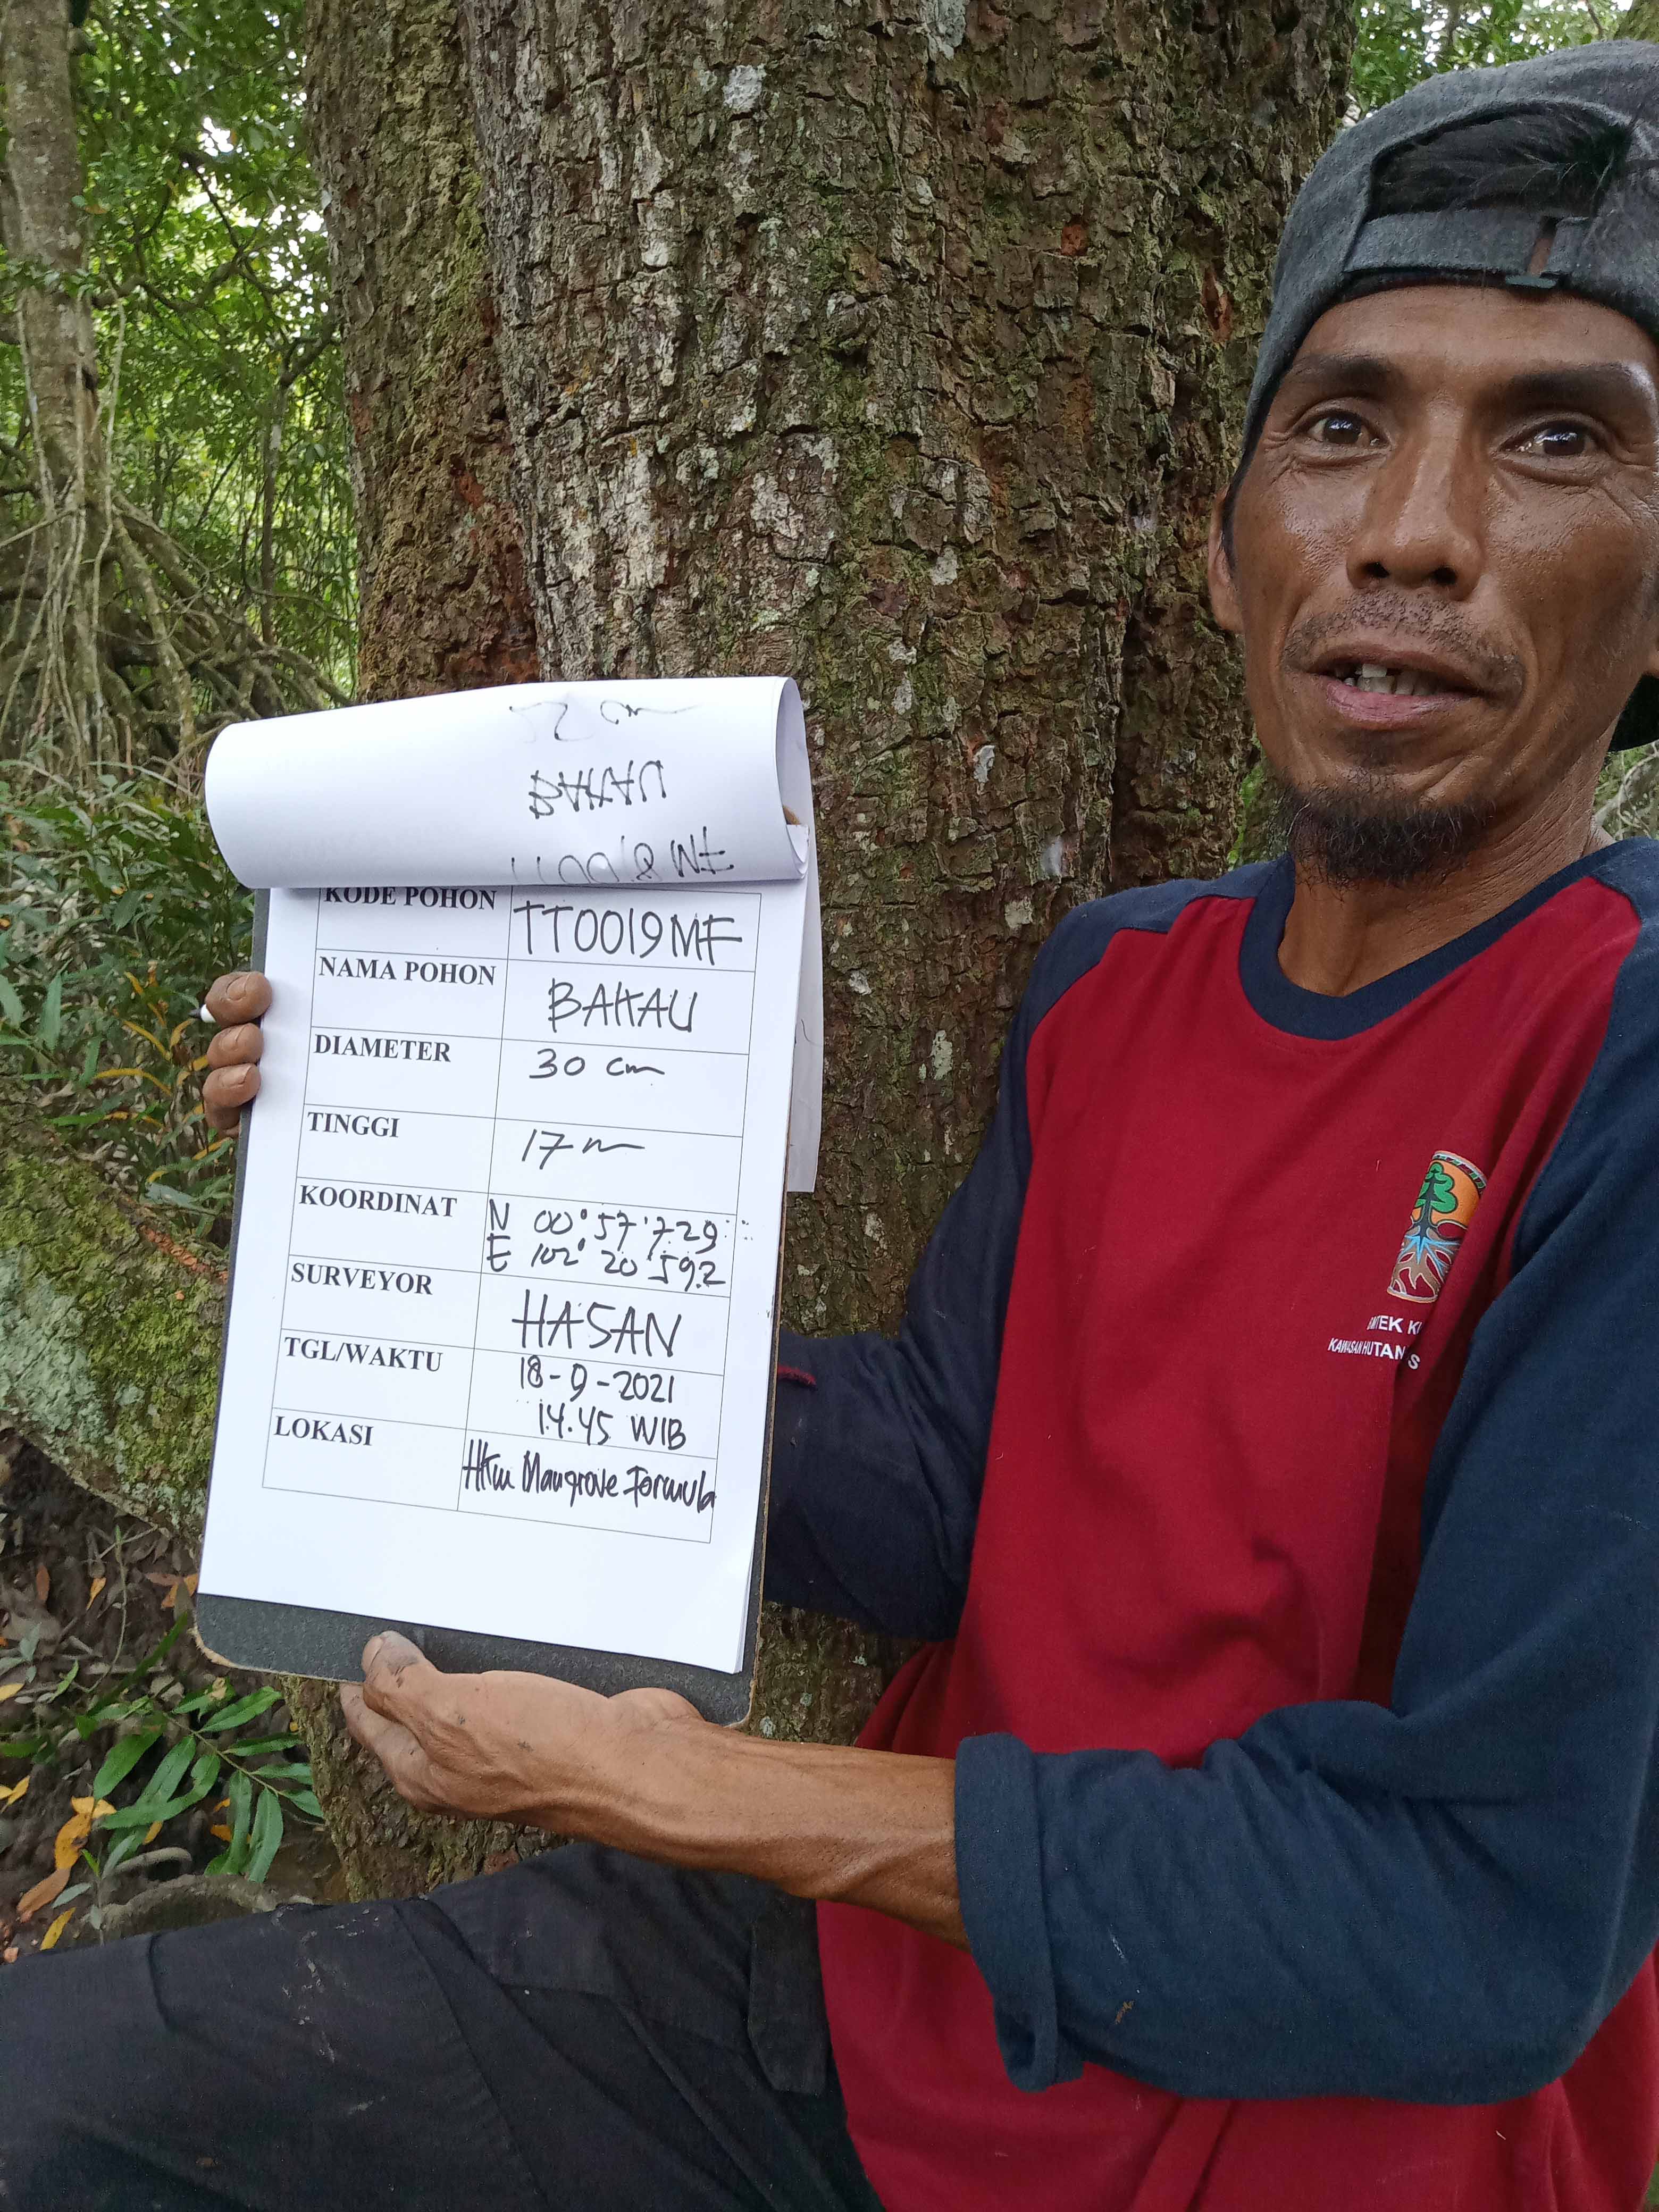 KODE POHON TT0019MF
NAMA POHON BAKAU
DIAMETER 30 cm
TINGGI 17 m
KOORDINAT N 00° 57' 7.29"
E 102° 20' 59.2
SURVEYOR HASAN
TGL/WAKTU 18-9-2021
14.45 WIB
LOKASI HKm Mangrove Formula
BAKAU
KAWASAN HUTAN